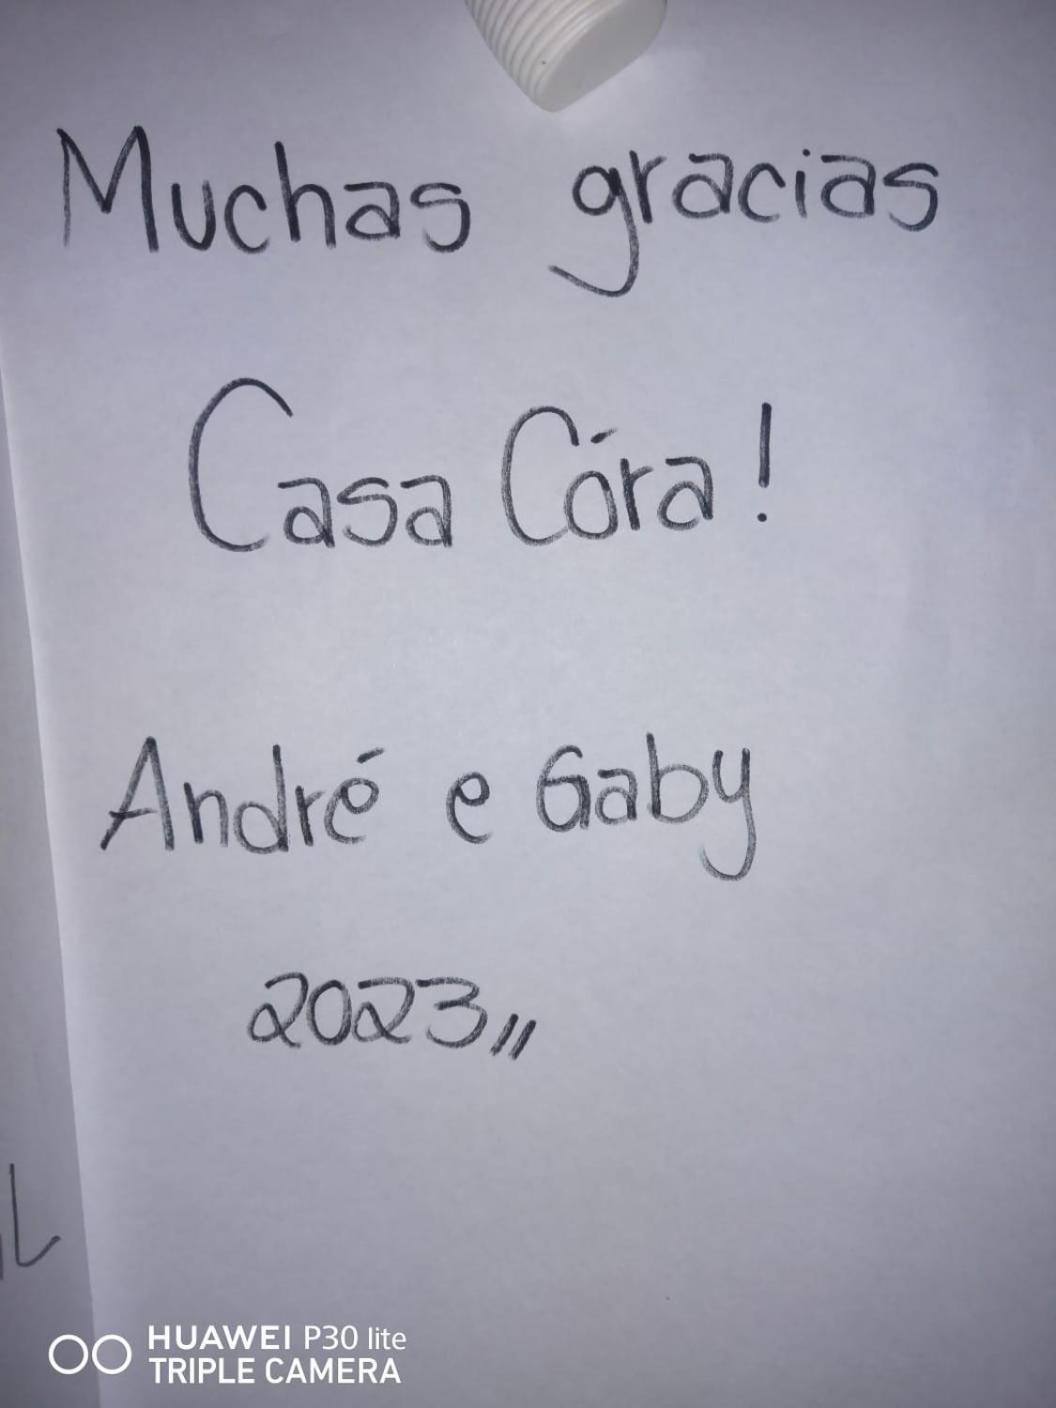 Muchas gracias
Casa Córa!
André e Gaby
2023,,
L
HUAWEI P30 lite
TRIPLE CAMERA